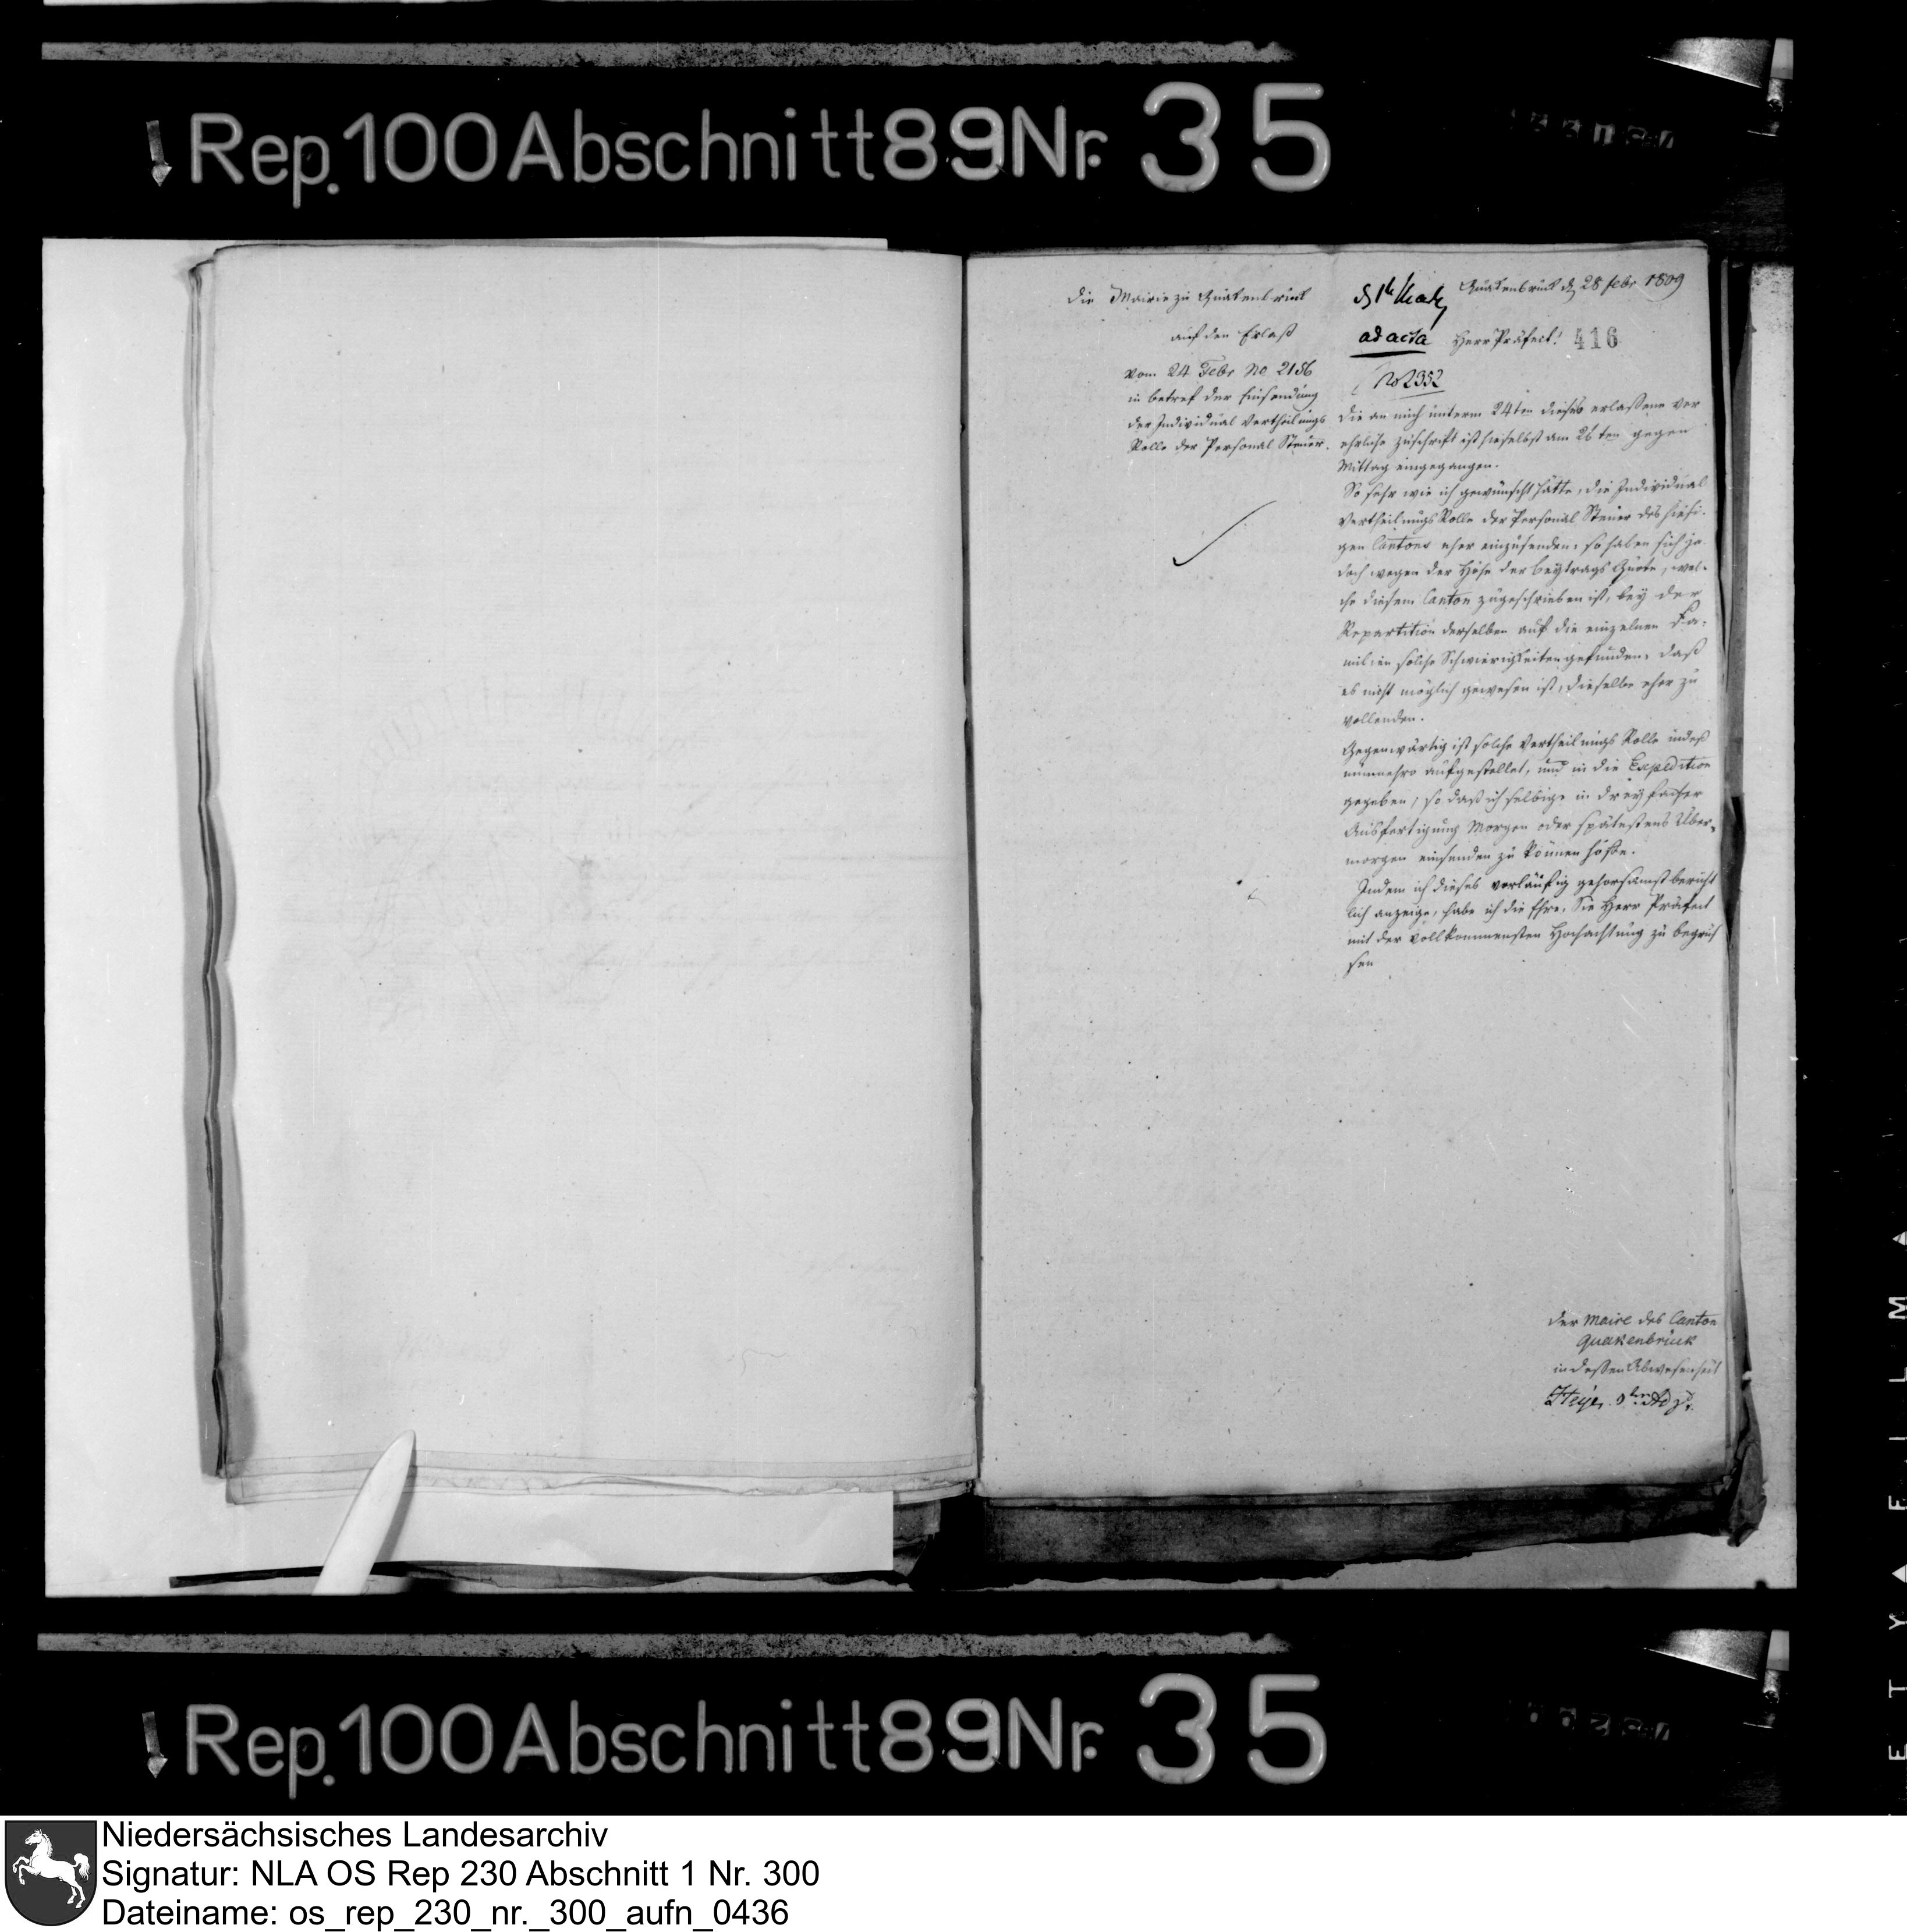 Rep.100 Abschnitt 89 Nr. 35
Die Mairie zu Quakenbrück
auf den Erlaß
vom 24 Febr No 2156
in betref der Einsendung
der Individual Vertheilungs
Rolle der Personal Steuer.
Quakenbrück d 28 Febr 1809
ad acta
Herr Präfect!
416
No 2352
Die an mich unterm 24ten dieses erlassene ver
ehrliche Zuschrift ist hieselbst am 26ten gegen
Mittag eingegangen.
So sehr wie ich gewünscht hätte, die Individual
Vertheilungs Rolle der Personal Steuer des hiesi-
gen Cantons eher einzusenden, so haben sich je
doch wegen der Höhe der Beytrags Quote, wel-
che diesem Canton zugeschrieben ist, bey der
Repartition derselben auf die einzelnen Fa-
milien solche Schwierigkeiten gefunden, daß
es nicht möglich gewesen ist, dieselbe eher zu
vollenden.
Gegenwärtig ist solche Vertheilungs Rolle indeß
nunmehro aufgestellet, und in die Expedition
gegeben, so daß ich selbige in dreyfacher
Ausfertigung Morgen oder spätestens Über-
morgen einsenden zu können hoffe.
Indem ich dieses vorläufig gehorsamst bericht
lich anzeige, habe ich die Ehre, Sie Herr Präfect
mit der vollkommensten Hochachtung zu begrüs
sen
Der Maire des Canton
Quakenbrück
in dessen Abwesenheit
Heye
Rep.100 Abschnitt 89 Nr. 35
Niedersächsisches Landesarchiv
Signatur: NLA OS Rep 230 Abschnitt 1 Nr. 300
Dateiname: os_rep_230_nr._300_aufn_0436